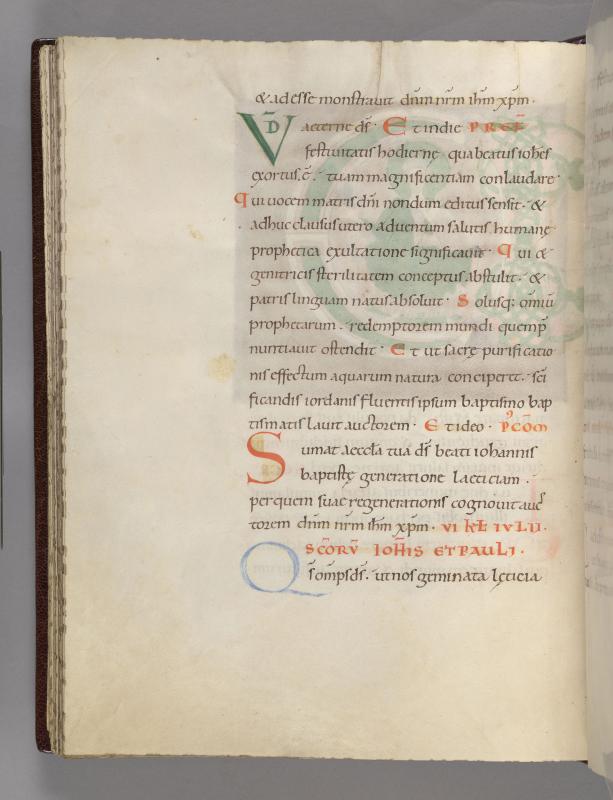 & adesse monstrauit dnm nrm ihm xpm.
VD aeterne ds. Et in die PREF
festiuitatis hodierne qua beatus iohes
exortus.ē. tuam magnificentiam conlaudare
qui uocem matris dni nondum editus sensit. &
adhuc clausus utero aduentum salutis humane
prophetica exultatione significauit. Qui &
genitricis sterilitatem conceptus abstulit. &
patris linguam natus absoluit. Solusq; omniu
prophetarum. redemptorem mundi quem p
nuntiauit ostendit. Et ut sacrę purificatio
nis effectum aquarum natura conciperet. sci
ficandis iordanis fluentis ipsum baptismo bap
tismatis lauit auctorem. Et ideo. P CŌM
Sumat aeccla tua ds beati iohannis
baptistę generatione laeticiam.
per quem suae regenerationis cognouit auc
torem dnm nrm ihm xpm. VI KL IVLII.
SCŌRV IOHIS ET PAULI.
Qs omps ds. ut nos geminata lęticia